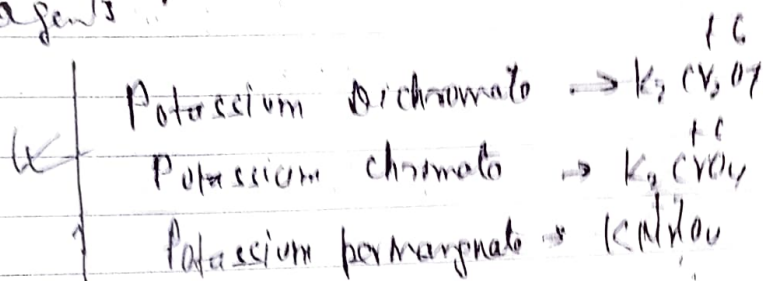 agents
+6
Potassium Dichromate → K2 Cr2 O7
+6
Potassium chromate → K2 CrO4
Potassium permanganate → KMnO4